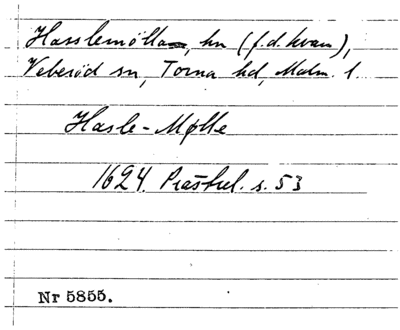 Hasslemölla, hn (f.d. kvarn),
Veberöd sn, Torna hd, Malm. l.
Hasle-Mølle
1624. Præstrel. s. 53
Nr 5855.